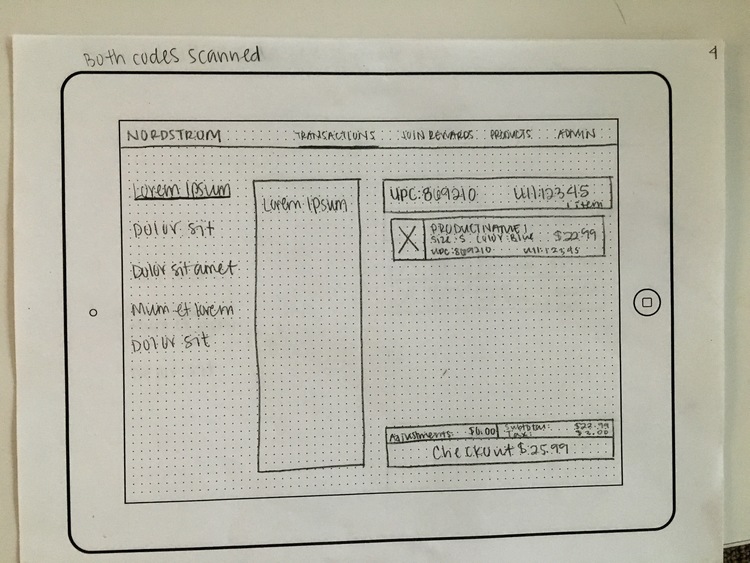 Both codes scanned
4
NORDSTROM TRANSACTIONS JOIN REWARDS PRODUCTS ADMIN
Lorem Ipsum
Dolor sit
Dolor sit amet
Mum et lorem
Dolor sit
Lorem Ipsum
UPC:869210 UII:12345
1 item
PRODUCT NAME 1
Size: S Color: Blue $22.99
UPC:869210 UII:12345
Adjustments: $0.00 Subtotal: $22.99
Tax: $3.00
Checkout $25.99